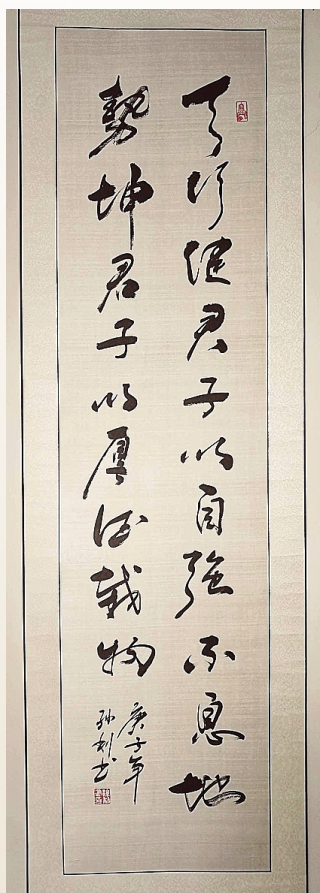 天行健君子以自强不息地
势坤君子以厚德载物
庚子年
孙利书